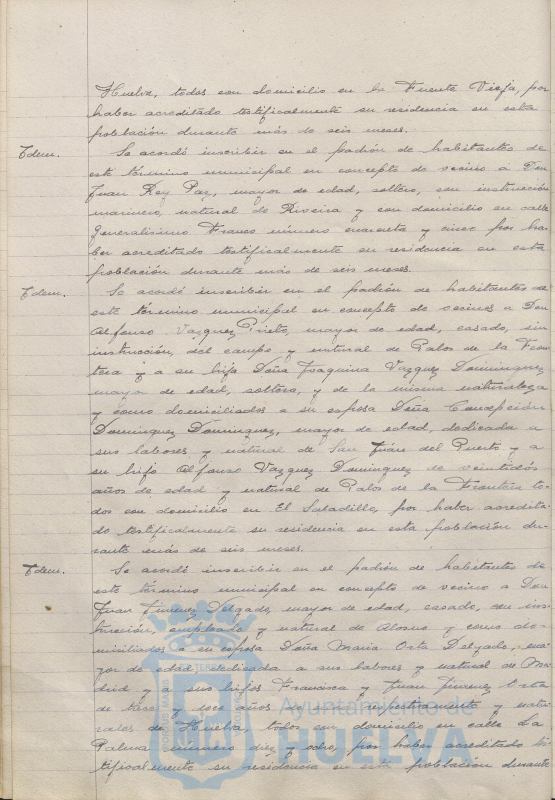 Huelva, todos con domicilio en la Fuente Vieja, por
haber acreditado testificalmente su residencia en esta
población durante más de seis meses.
Idem. Se acordó inscribir en el padrón de habitantes de
este término municipal en concepto de vecino a Don
Juan Rey Paz, mayor de edad, soltero, con instrucción
marinero, natural de Riveira y con domicilio en calle
Generalísimo Franco número cuarenta y cinco por ha-
ber acreditado testificalmente su residencia en esta
población durante más de seis meses.
Idem. Se acordó inscribir en el padrón de habitantes de
este término municipal en concepto de vecinos a Don
Alfonso Vazquez Prieto, mayor de edad, casado, sin
instrucción, del campo y natural de Palos de la Fron-
tera y a su hija Doña Joaquina Vazquez Dominguez
mayor de edad, soltera, y de la misma naturaleza
y como domiciliados a su esposa Doña Concepción
Dominguez Dominguez, mayor de edad, dedicada a
sus labores y natural de San Juan del Puerto y a
su hijo Alfonso Vazquez Dominguez de veintidós
años de edad y natural de Palos de la Frontera to-
dos con domicilio en El Saladillo, por haber acredita-
do testificalmente su residencia en esta población du-
rante más de seis meses.
Idem. Se acordó inscribir en el padrón de habitantes de
este término municipal en concepto de vecino a Don
Juan Jimenez Delgado, mayor de edad, casado, con ins-
trucción, empleado y natural de Alosno y como do-
miciliados a su esposa Doña Maria Orta Delgado, ma-
yor de edad, dedicada a sus labores y natural de Ma-
drid y a sus hijos Francisca y Juan Jimenez Orta
de trece y doce años de edad respectivamente y natu-
rales de Huelva, todos con domicilio en calle La
Palma número diez y ocho, por haber acreditado tes-
tificalmente su residencia en esta población durante
Ayuntamiento de
HUELVA